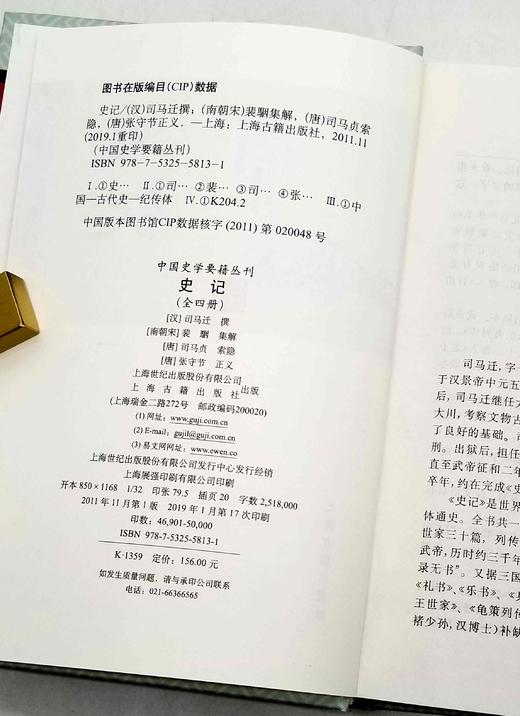 图书在版编目(CIP)数据
史记/(汉)司马迁撰;(南朝宋)裴駰集解,(唐)司马贞索
隐,(唐)张守节正义.—上海:上海古籍出版社,2011.11
(2019.1重印)
(中国史学要籍丛刊)
ISBN 978-7-5325-5813-1
Ⅰ.①史… Ⅱ.①司… ②裴… ③司… ④张… Ⅲ.①中
国—古代史—纪传体 Ⅳ.①K204.2
中国版本图书馆CIP数据核字(2011)第 020048 号
中国史学要籍丛刊
史 记
(全四册)
[汉] 司马迁 撰
[南朝宋] 裴 駰 集解
[唐] 司马贞 索隐
[唐] 张守节 正义
上海世纪出版股份有限公司
上 海 古 籍 出 版 社 出版
(上海瑞金二路272号 邮政编码200020)
(1) 网址:www.guji.com.cn
(2) E-mail:guji1@guji.com.cn
(3) 易文网网址:www.ewen.co
上海世纪出版股份有限公司发行中心发行经销
上海展强印刷有限公司印刷
开本 850×1168 1/32 印张 79.5 插页 20 字数 2,518,000
2011 年 11 月第 1 版 2019 年 1 月第 17 次印刷
印数:46,901-50,000
ISBN 978-7-5325-5813-1
K·1359 定价:156.00 元
如发生质量问题,请与承印公司联系
电话:021-66366565
司马迁,字子
于汉景帝中元五
后,司马迁继任太
大川,考察文物古
了良好的基础。
刑。出狱后,担任
直至武帝征和二年
卒年,约在完成《史
《史记》是世界
体通史。全书共一
世家三十篇,列传
武帝,历时约三千年
录无书”。又据三国
《礼书》、《乐书》、
王世家》、《龟策列传
褚少孙,汉博士)补缺